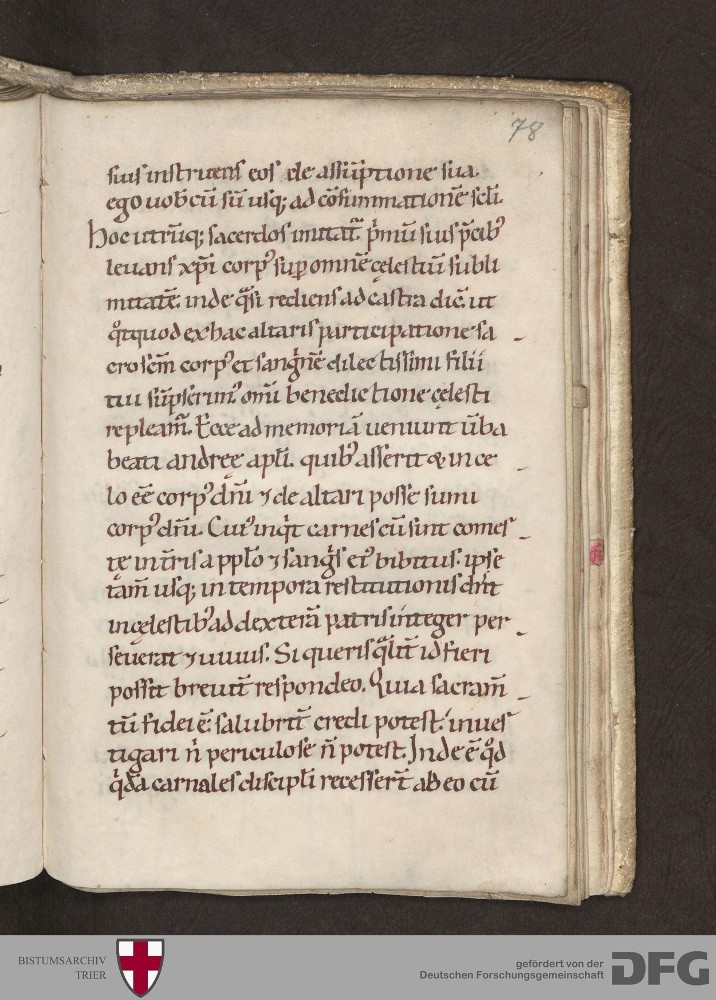 78
suis instruens eos de assūptione sua.
ego uob cū sū usq; ad cōsummationē scl̄i.
hoc utrūq; sacerdos imitat̄. pⁱmū suis p̄cibꝰ
leuans xp̄i corpꝰ suꝑ omnē cęlestiū subli
mitatē. inde qͣsi rediens ad castra dic̄. ut
qͦtquod ex hac altaris participatione sa
crosc̄m corpꝰ et sangⁱnē dilectissimi filii
tui sūpserimꝰ om̄i benedictione cęlesti
repleam̄. Ecce ad memoriā ueniunt ūba
beati andreę apl̄i. quibꝰ asserit & in ce
lo eē corpꝰ dn̄i ⁊ de altari posse sumi
corpꝰ dn̄i. Cuiꝰ inqⁱt carnes cū sint comes
tę in t̄ris a ppl̄o ⁊ sangⁱs eiꝰ bibitus. ipse
tam̄ usq; in tempora restitutionis
in cęlestibꝰ ad dexterā patris integer per
seuerat ⁊ uiuus. Si queris qͣlit̄ id fieri
possit breuit̄ respondeo. Quia sacram̄
tū fidei ē. salubrit̄ credi potest. inues
tigari ⁊ periculose n̄ potest. Inde ē qͦd
qⁱdā carnales discipl̄i recesser̄t ab eo cū
BISTUMSARCHIV
TRIER
gefördert von der
Deutschen Forschungsgemeinschaft
DFG